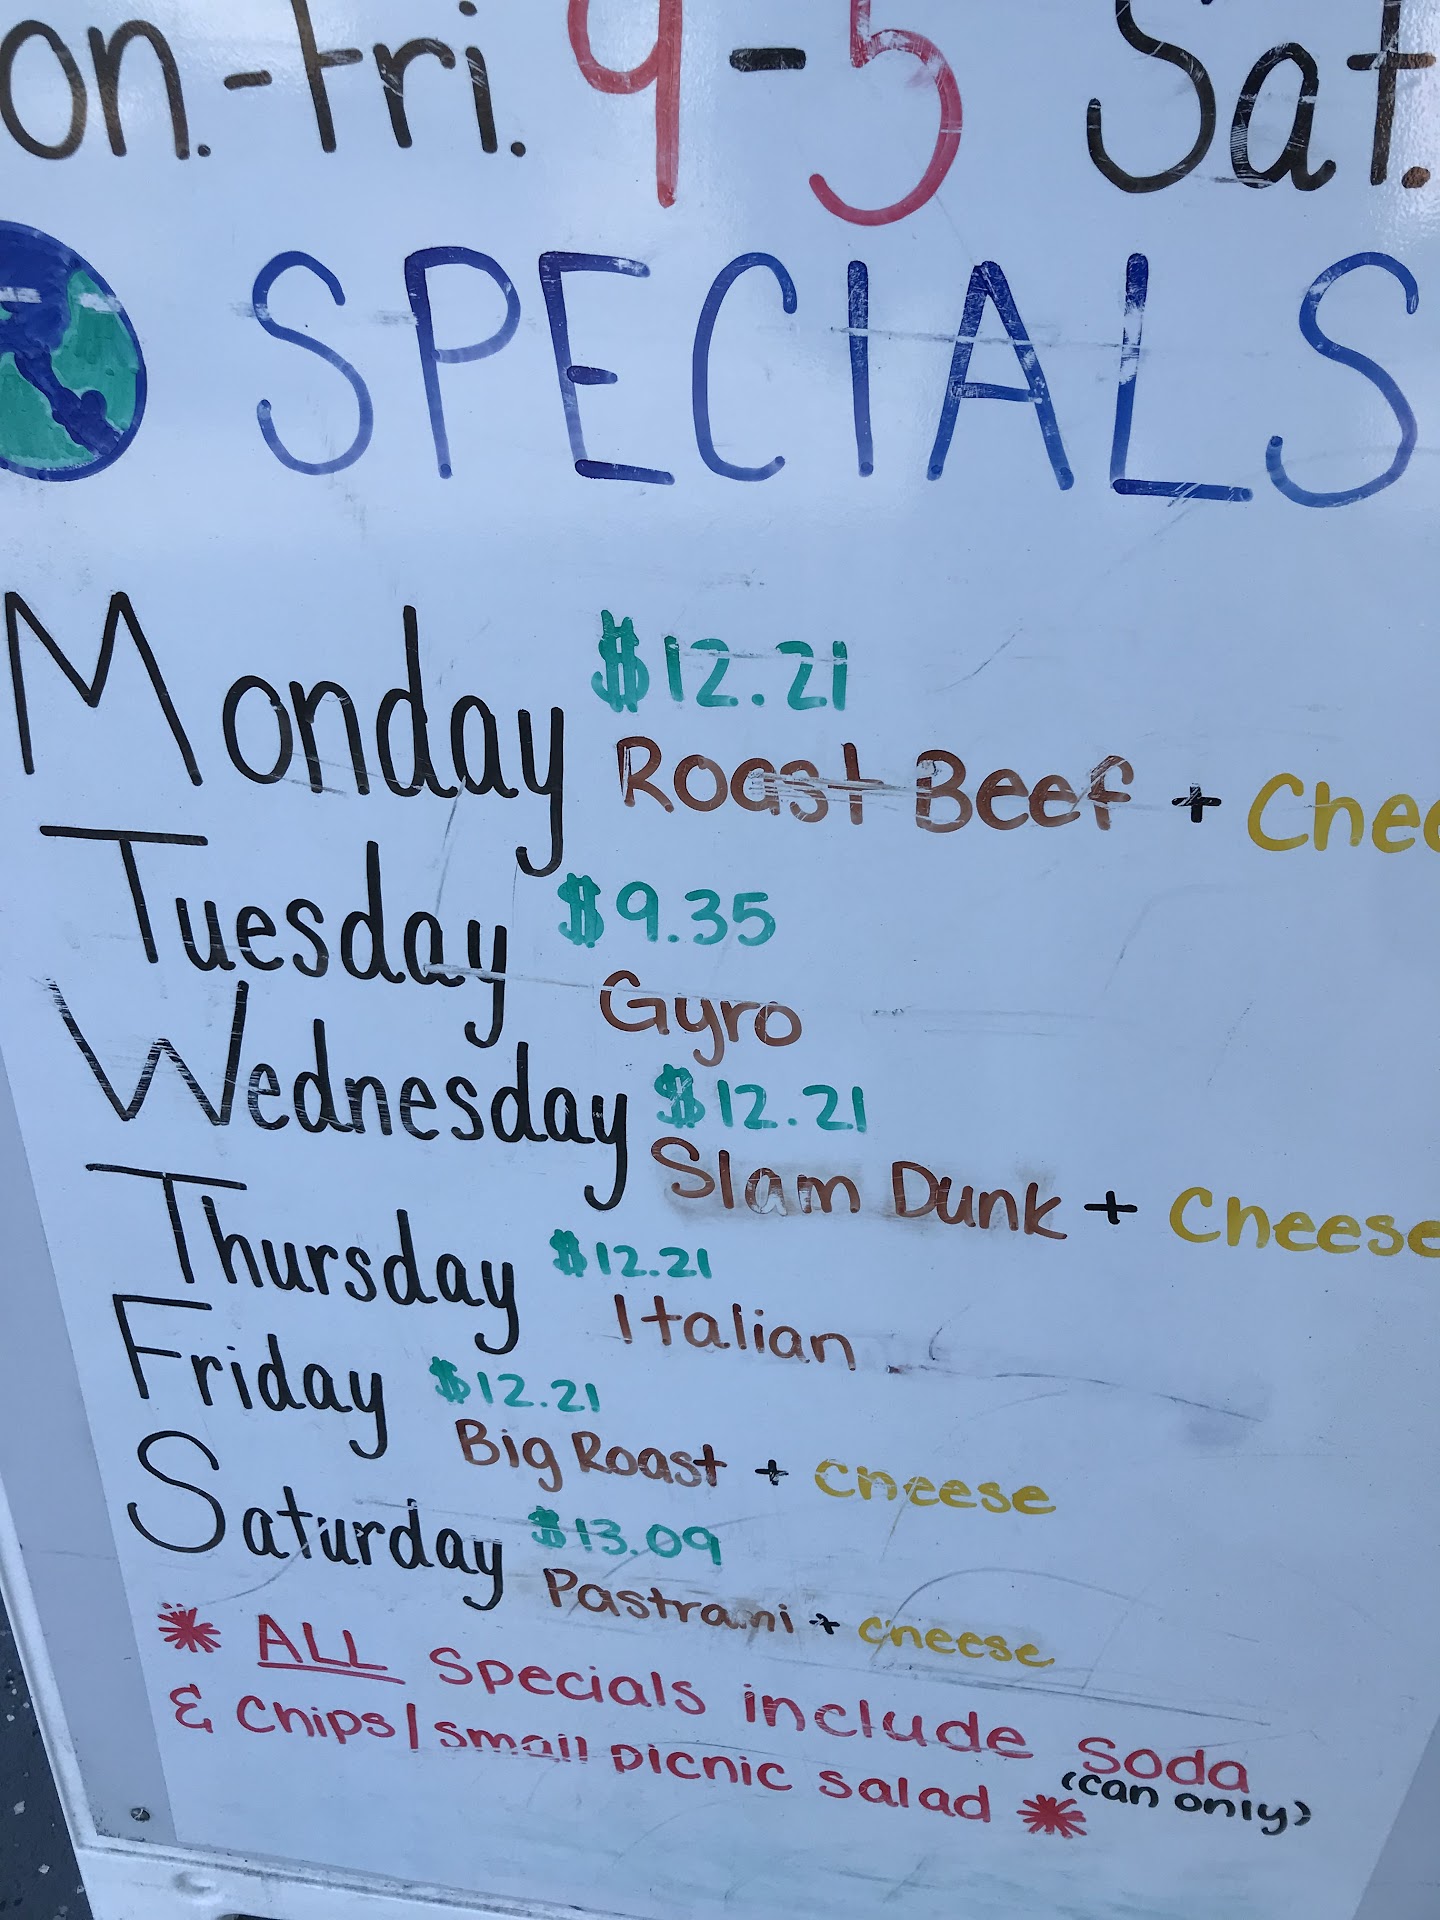 on.-Fri. 9-5 Sat.
SPECIALS
Monday $12.21
Roast Beef + Chee
Tuesday $9.35
Gyro
Wednesday $12.21
Slam Dunk + Cheese
Thursday $12.21
Italian
Friday $12.21
Big Roast + Cheese
Saturday $13.09
Pastrami + Cheese
* ALL Specials include Soda
(can only)
& Chips/small picnic salad *